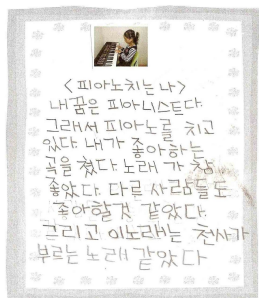 <피아노치는 나>
내꿈은 피아니스트다.
그래서 피아노를 치고
있다. 내가 좋아하는
곡을 쳤다. 노래 가 참
좋았다. 다른 사람들도
좋아할것 같았다.
그리고 이노래는 천사가
부르는 노래 같았다